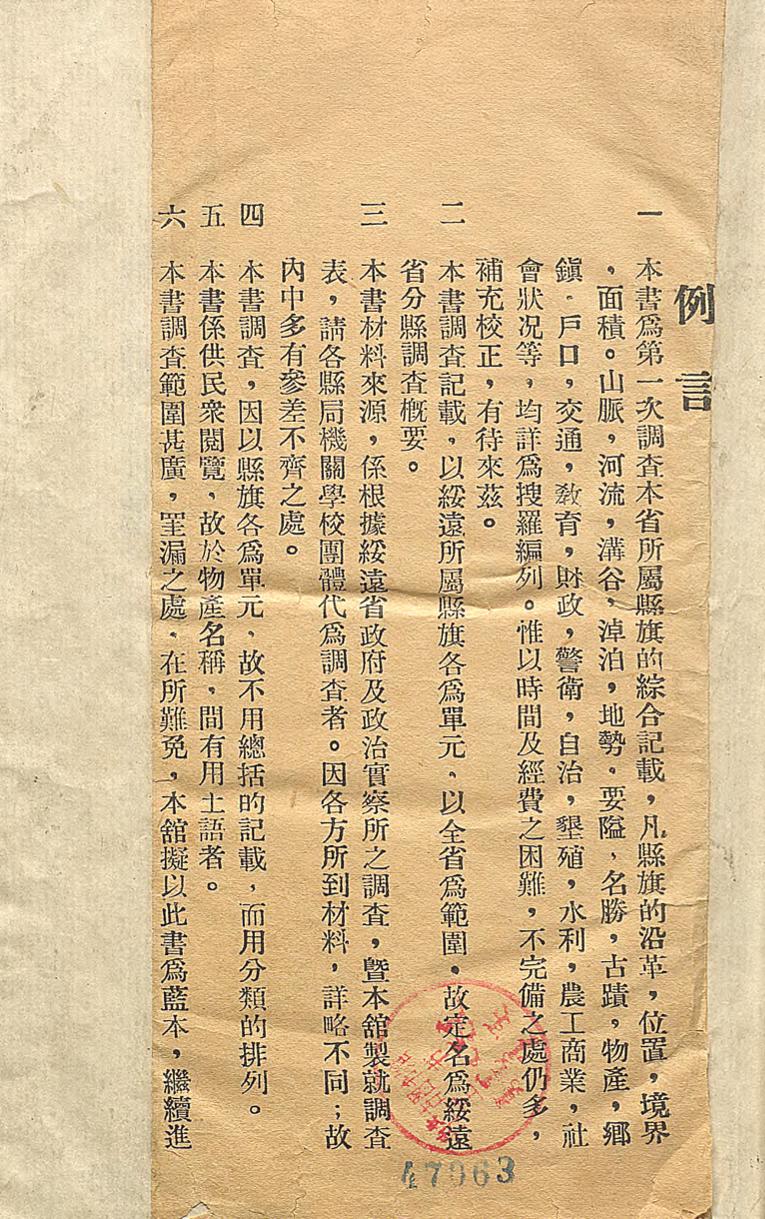 例言
一 本書爲第一次調查本省所屬縣旗的綜合記載，凡縣旗的沿革，位置，境界
，面積。山脈，河流，溝谷，淖泊，地勢。要隘、名勝，古蹟，物產，鄉
鎭。戶口，交通，敎育，財政，警衛，自治，墾殖，水利，農工商業，社
會狀況等，均詳爲搜羅編列。惟以時間及經費之困難，不完備之處仍多，
補充校正，有待來茲。
二 本書調查記載，以綏遠所屬縣旗各爲單元。以全省爲範圍。故定名爲綏遠
省分縣調查槪要。
三 本書材料來源，係根據綏遠省政府及政治實察所之調查，曁本舘製就調查
表，請各縣局機關學校團體代爲調查者。因各方所到材料，詳略不同；故
內中多有參差不齊之處。
四 本書調查，因以縣旗各爲單元、故不用總括的記載，而用分類的排列。
五 本書係供民衆閱覽、故於物產名稱，間有用土語者。
六 本書調查範圍甚廣，罣漏之處、在所難免，本舘擬以此書爲藍本，繼續進
47963